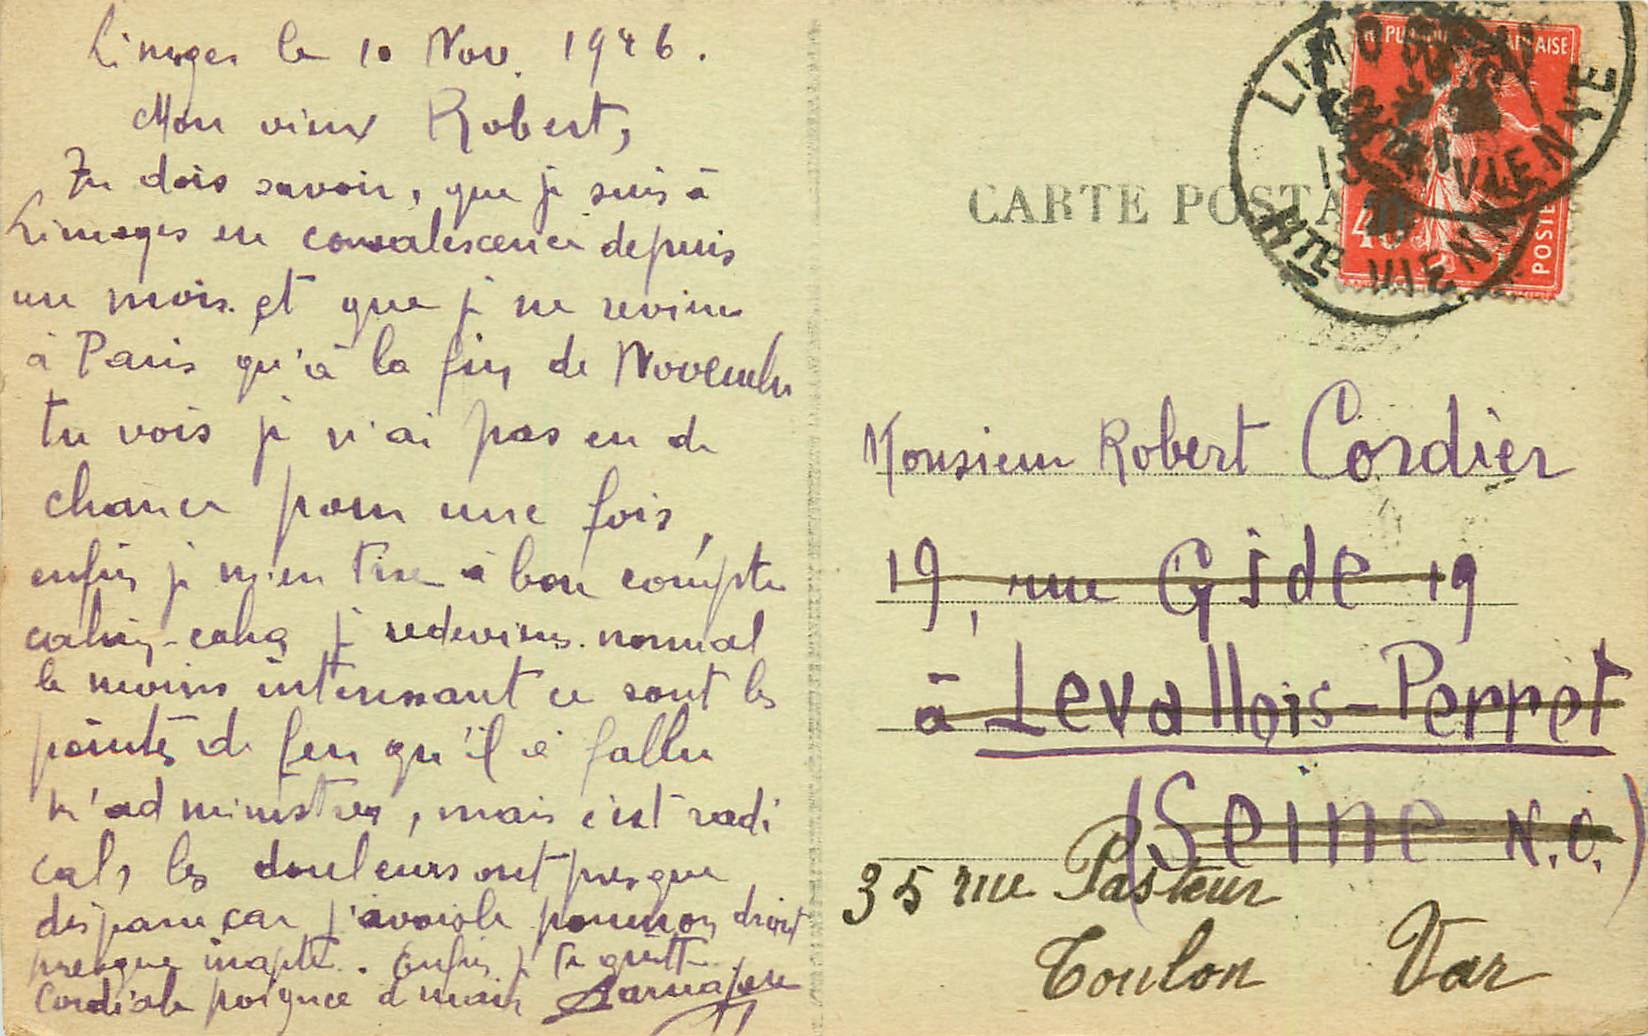 Limoges le 10 Nov. 1926.
Mon vieux Robert,
Tu dois savoir, que je suis à
Limoges en convalescence depuis
un mois. et que je ne reviens
à Paris qu'à la fin de Novembre
tu vois je n'ai pas eu de
chance pour une fois,
enfin je m'en tire à bon compte
cahin-caha je redeviens normal
le moins intéressant ce sont les
pointes de feu qu'il a fallu
m'administrer, mais c'est radi
cal, les douleurs ont presque
disparu car j'avais le poumon droit
presque inapte. Enfin je te quitte
Cordiale poignée de main
CARTE POSTA
LIMOGES
Hte VIENNE
POSTE
40
Monsieur Robert Cordier
19, rue Gide 19
à Levallois-Perret
(Seine N.O.)
35 rue Pasteur
Toulon Var